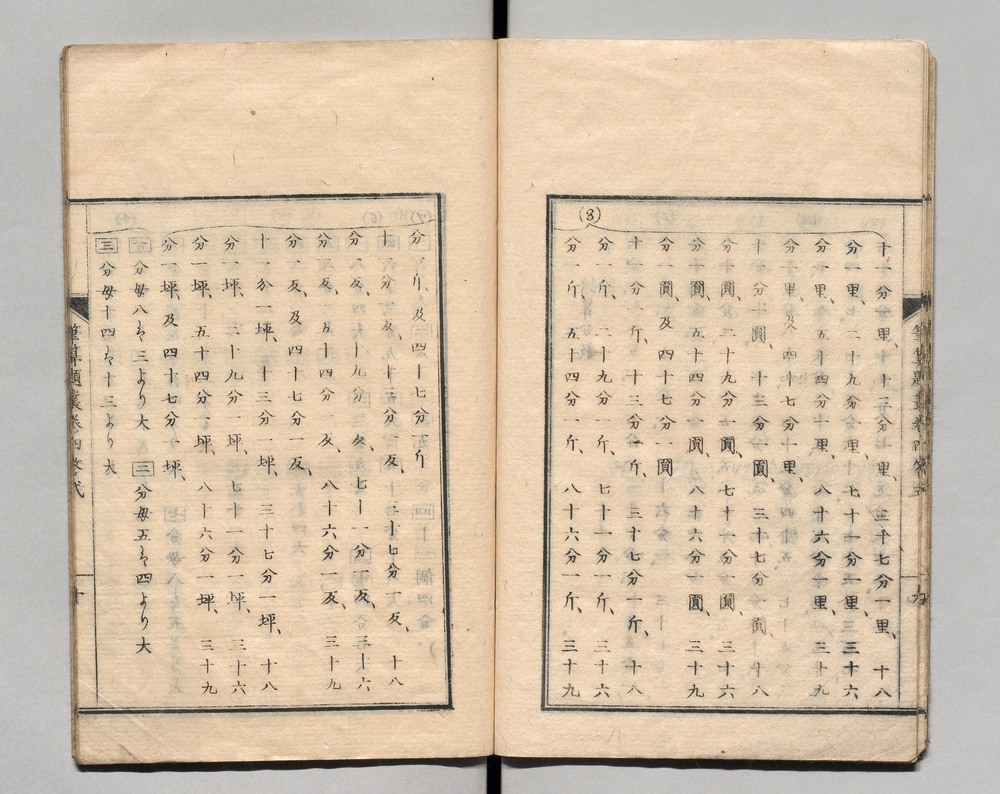 十一分一里、十三分一里、三十七分一里、十八
分一里、二十九分一里、七十一分一里、三十六
分一里、五十四分一里、八十六分一里、三十九
分一里、及四十七分一里、
十一分一圓、十三分一圓、三十七分一圓、十八
分一圓、二十九分一圓、七十一分一圓、三十六
分一圓、五十四分一圓、八十六分一圓、三十九
分一圓、及四十七分一圓
(8)
十一分一斤、十三分一斤、三十七分一斤、十八
分一斤、二十九分一斤、七十一分一斤、三十六
分一斤、五十四分一斤、八十六分一斤、三十九
分一斤、及四十七分一斤
十一分一反、十三分一反、三十七分一反、十八
分一反、二十九分一反、七十一分一反、三十六
分一反、五十四分一反、八十六分一反、三十九
分一反、及四十七分一反、
十一分一坪、十三分一坪、三十七分一坪、十八
分一坪、二十九分一坪、七十一分一坪、三十六
分一坪、五十四分一坪、八十六分一坪、三十九
分一坪、及四十七分一坪、
分母八は三より大 三 分母五は四より大
三 分母十四は十三より大
筆算題叢巻四
十